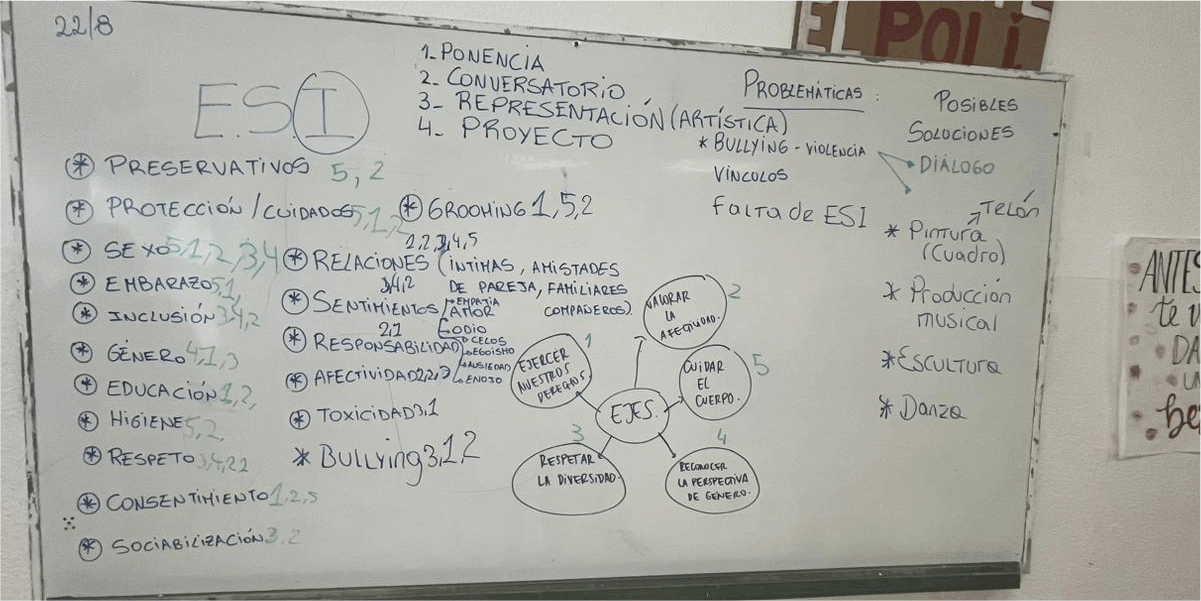 22/8
E.S.I
1_ PONENCIA
2_ CONVERSATORIO
3_ REPRESENTACIÓN (ARTÍSTICA)
4_ PROYECTO
* PRESERVATIVOS 5, 2
* PROTECCIÓN / CUIDADOS 5,1,2
* SEXO 5,1,2,3,4
* EMBARAZO 5,1,
* INCLUSIÓN 3,4,2
* GÉNERO 4,1,3
* EDUCACIÓN 1,2,
* HIGIENE 5,2,
* RESPETO 3,4,2,1
* CONSENTIMIENTO 1,2,5
* SOCIABILIZACIÓN 3,2
* GROOMING 1,5,2
1,2,3,4,5
* RELACIONES (ÍNTIMAS, AMISTADES
DE PAREJA, FAMILIARES
COMPAÑEROS).
3,4,2
* SENTIMIENTOS
EMPATÍA
AMOR
ODIO
CELOS
EGOÍSMO
ANSIEDAD
ENOJO
2,1
* RESPONSABILIDAD
* AFECTIVIDAD 2,2,3
* TOXICIDAD 3,1
* Bullying 3,1,2
EJES.
EJERCER
NUESTROS
DERECHOS.
1
VALORAR
LA
AFECTIVIDAD.
2
CUIDAR
EL
CUERPO.
5
RESPETAR
LA DIVERSIDAD.
3
RECONOCER
LA PERSPECTIVA
DE GÉNERO.
4
PROBLEMÁTICAS :
* BULLYING - VIOLENCIA
VÍNCULOS
Falta de ESI
POSIBLES
SOLUCIONES
DIÁLOGO
TELÓN
* Pintura
(Cuadro)
* Producción
musical
* Escultura
* Danza
EL POLI
ANTES
te
DA
be